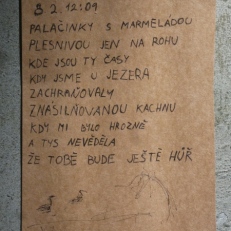 3 2. 12:01
PALAČINKY S MARMELÁDOU
PLESNIVOU JEN NA ROHU
KDE JSOU TY ČASY
KDY JSME U JEZERA
ZACHRAŇOVALY
ZNÁSILŇOVANOU KACHNU
KDY MI BYLO HROZNĚ
A TYS NEVĚDĚLA
ŽE TOBĚ BUDE JEŠTĚ HŮŘ